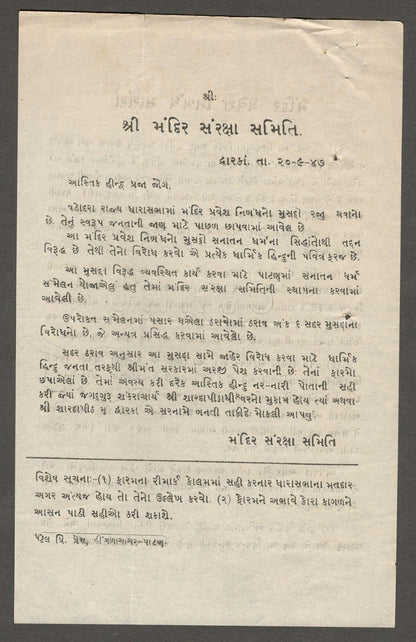 શ્રીઃ
શ્રી મંદિર સંરક્ષા સમિતિ.
દ્વારકાં. તા. ૨૦-૯-૪૭
આસ્તિક હીન્દુ પ્રજા જોગ,
વડોદરા રાજ્ય ધારાસભામાં મંદિર પ્રવેશ નિબંધનો મુસદ્દો રજી થવાનો
છે. તેનું સ્વરૂપ જનતાની જાણ માટે પાછળ છાપવામાં આવેલ છે.
આ મંદિર પ્રવેશ નિબંધનો મુસદ્દો સનાતન ધર્મના સિદ્ધાંતોથી તદ્દન
વિરૂદ્ધ છે તેથી તેનો વિરોધ કરવો એ પ્રત્યેક ધાર્મિક હિન્દુની પવિત્ર ફરજ છે.
આ મુસદ્દા વિરૂદ્ધ વ્યવસ્થિત કાર્ય કરવા માટે પાટણમાં સનાતન ધર્મ
સંમેલન યોજાએલું હતું તેમાં મંદિર સંરક્ષા સમિતિની સ્થાપના કરવામાં
આવેલી છે.
ઉપરોક્ત સંમેલનમાં પસાર થએલા ઠરાવોમાં ઠરાવ અંક ૬ સદર મુસદ્દાના
વિરોધનો છે. જે અન્યત્ર પ્રસિદ્ધ કરવામાં આવેલો છે.
સદર ઠરાવ અનુસાર આ મુસદ્દા સામે જાહેર વિરોધ કરવા માટે ધાર્મિક
હિન્દુ જનતા તરફથી શ્રીમંત સરકારમાં અરજી પેશ કરવાની છે. તેનાં ફારમો
છપાએલાં છે. તેમાં અવશ્ય કરી દરેક આસ્તિક હીન્દુ નર-નારી પોતાની સહી
કરી જ્યાં જગદ્ગુરૂ શંકરાચાર્ય શ્રી શારદાપીઠાધીશ્વરનો મુકામ હોય ત્યાં અથવા
શ્રી શારદાપીઠ મુ દ્વારકા એ સરનામે બનતી તાકીદે મોકલી આપવું.
મંદિર સંરક્ષા સમિતિ
વિશેષ સૂચનાઃ-(૧) ફારમના રીમાર્ક કોલમમાં સહી કરનાર ધારાસભાના મતદાર
અગર અંત્યજ હોય તો તેનો ઉલ્લેખ કરવો. (૨) ફોરમને અભાવે કોરા કાગળને
આસન પાડી સહીઓ કરી શકાશે.
પટેલ પ્રિ. પ્રેસ, હીંગળાચાચર-પાટણ